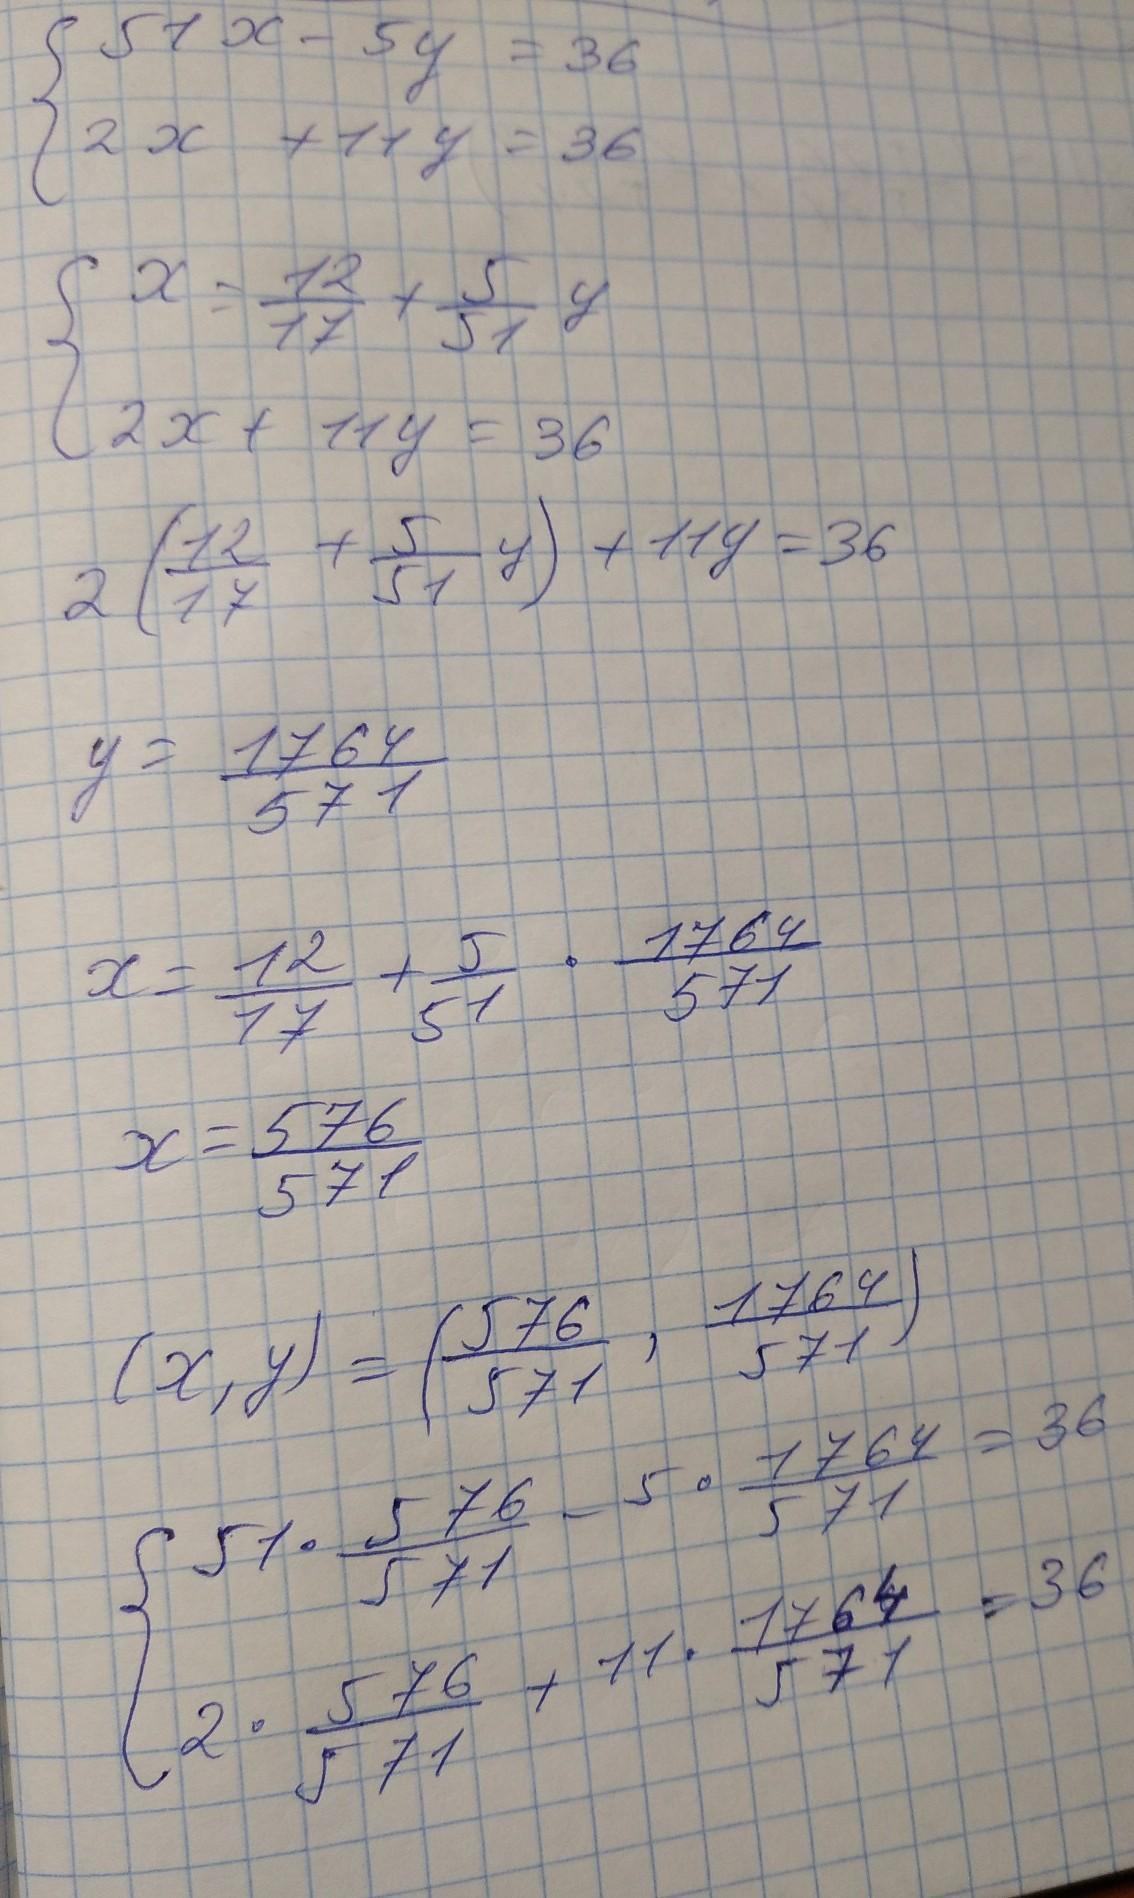 { 51x - 5y = 36
2x + 11y = 36
{ x = 12/17 + 5/51 y
2x + 11y = 36
2(12/17 + 5/51 y) + 11y = 36
y = 1764/571
x = 12/17 + 5/51 · 1764/571
x = 576/571
(x, y) = (576/571, 1764/571)
{ 51 · 576/571 - 5 · 1764/571 = 36
2 · 576/571 + 11 · 1764/571 = 36